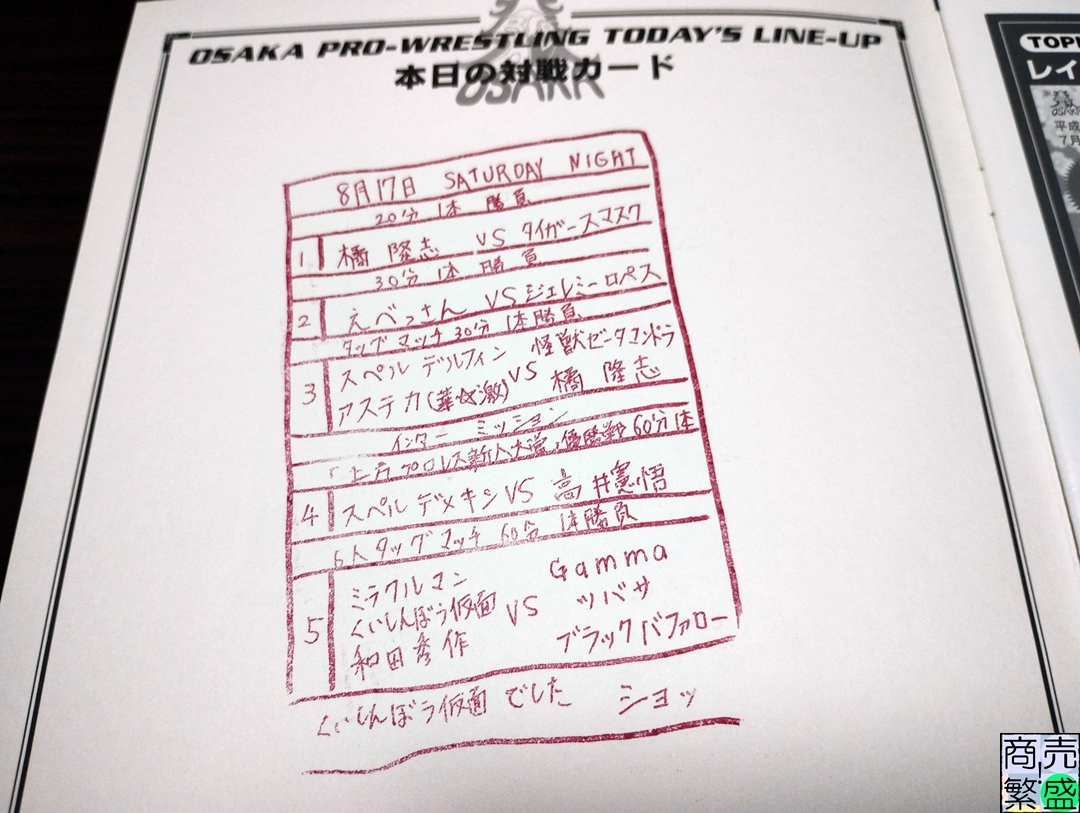 OSAKA PRO-WRESTLING TODAY'S LINE-UP
本日の対戦カード
OSAKA
8月17日 SATURDAY NIGHT
20分 1本 勝負
1 橘 隆志 VS タイガースマスク
30分 1本 勝負
2 えべっさん VS ジェレミーロペス
タッグマッチ 30分 1本勝負
3 スペル デルフィン 怪獣ゼータマンドラ
アステカ(華☆激) VS 橘 隆志
インターミッション
「上方プロレス新人大賞」優勝戦 60分1本
4 スペル デメキン VS 高井憲悟
6人タッグマッチ 60分 1本勝負
5 ミラクルマン Gamma
くいしんぼう仮面 VS ツバサ
和田秀作 ブラックバファロー
くいしんぼう仮面 でした ショッ
TOPI
レイ
OSAKA
平成
7月
商売
繁盛